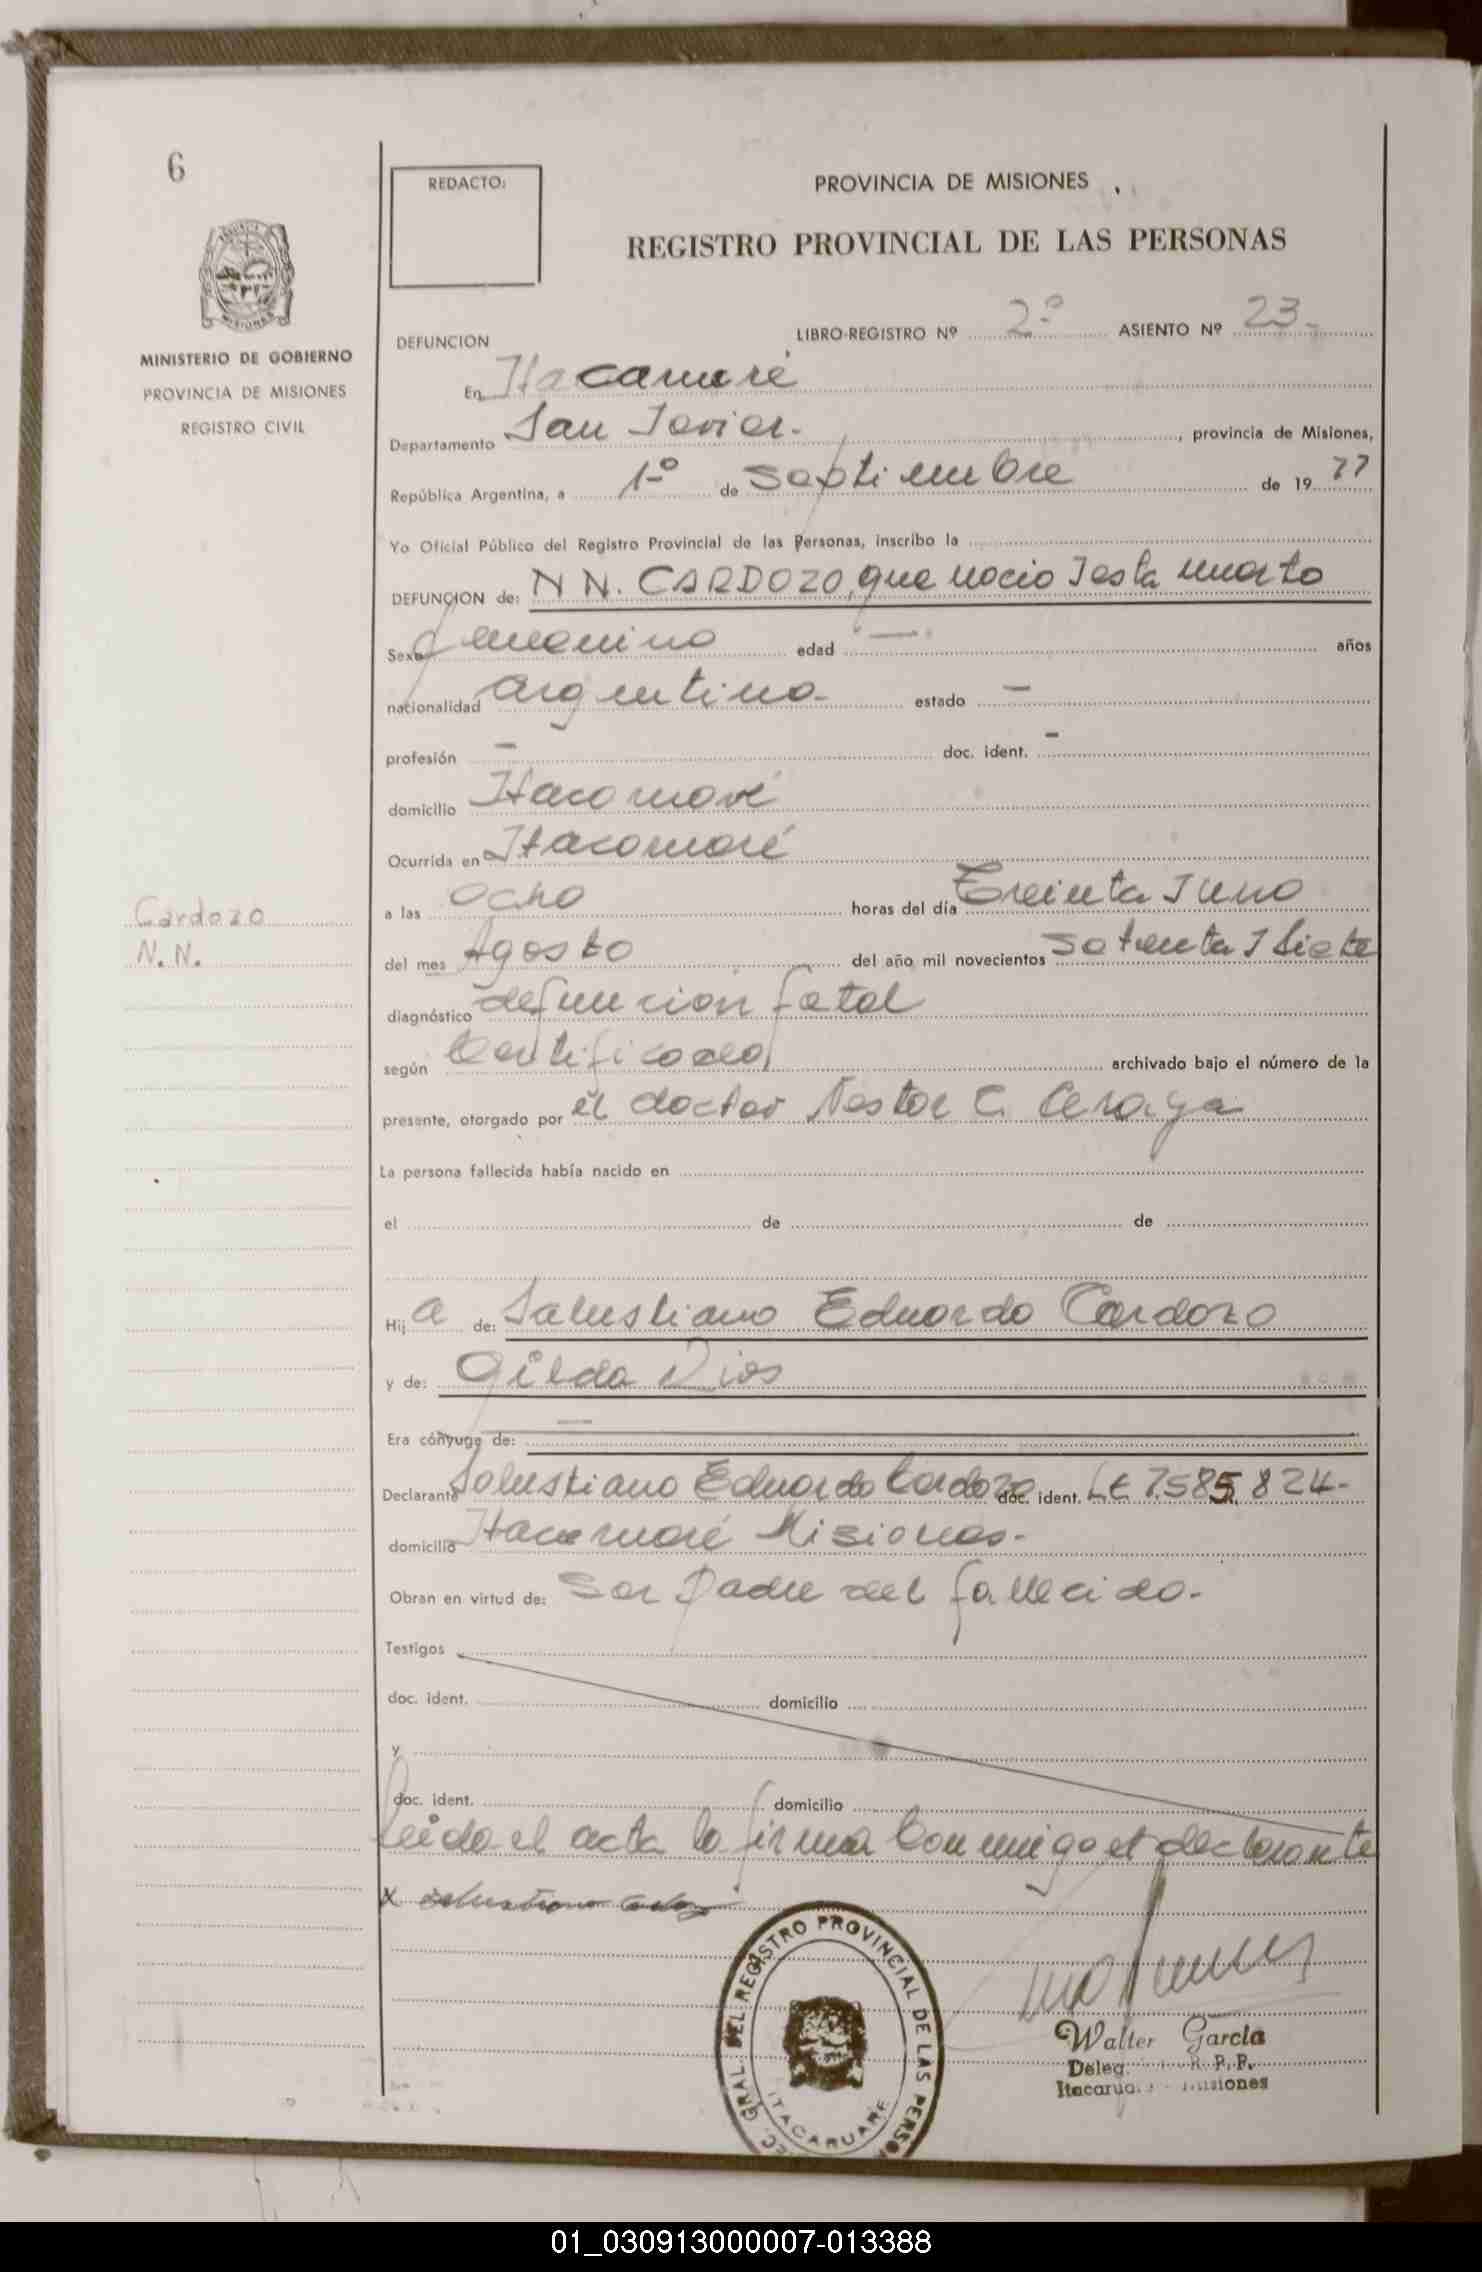 6
REDACTO:
PROVINCIA DE MISIONES
REGISTRO PROVINCIAL DE LAS PERSONAS
MISIONES
MINISTERIO DE GOBIERNO
PROVINCIA DE MISIONES
REGISTRO CIVIL
DEFUNCION
LIBRO-REGISTRO Nº 2º ASIENTO Nº 23.
En Itacaruaré
Departamento San Javier. , provincia de Misiones,
República Argentina, a 1º de Septiembre de 1977
Yo Oficial Público del Registro Provincial de las Personas, inscribo la
DEFUNCION de: N N. CARDOZO, que nacio I esta muerto
Sexo femenino edad " — " años
nacionalidad argentina- estado -
profesión - doc. ident. -
domicilio Itacaruaré
Ocurrida en Itacaruaré
a las Ocho horas del día Treinta I Uno
Cardozo
N. N.
del mes Agosto del año mil novecientos Setenta I Siete
diagnóstico defuncion fetal
según Certificado archivado bajo el número de la
presente, otorgado por el doctor Nestor C.
La persona fallecida había nacido en
el de de
Hij a de: Salustiano Eduardo Cardozo
y de: Gilda Rios
Era cónyuge de: —
Declarante Salustiano Eduardo Cardozo doc. ident. LE 7.585.824-
domicilio Itacaruaré Misiones-
Obran en virtud de: Ser padre del fallecido-
Testigos
doc. ident. domicilio
y
doc. ident. domicilio
Leida el acta la firma Conmigo el declarante
X Salustiano
GRAL. DEL REGISTRO PROVINCIAL DE LAS PERSON
ITACARUARE
Walter García
Deleg. R. P. P.
Itacarua. - Misiones
01_030913000007-013388